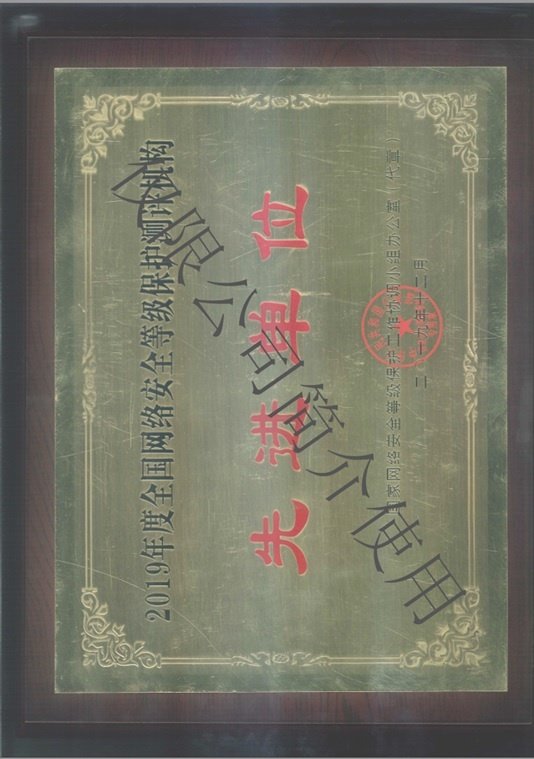 2019年度全国网络安全等级保护测评机构
先进单位
国家网络安全等级保护工作协调小组办公室（代章）
二〇一九年十二月
仅限公司简介使用